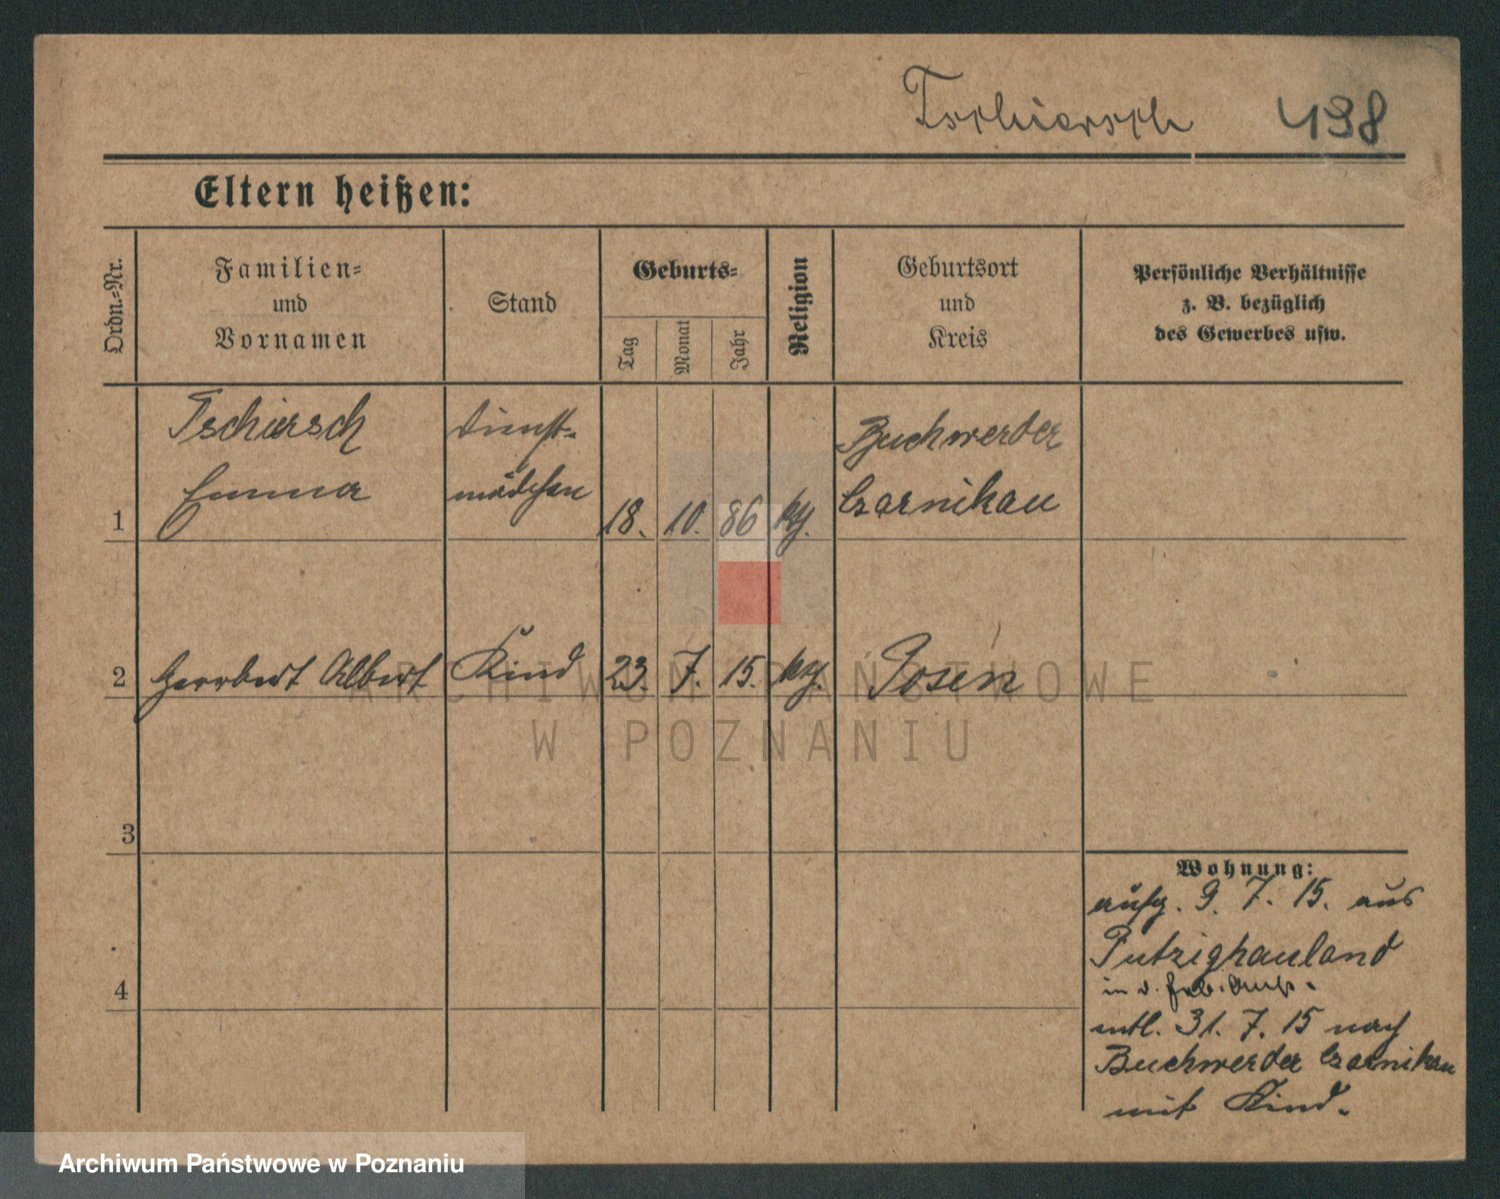 Tschiersch 498
Eltern heißen:
Ordn.-Nr.
Familien-
und
Vornamen
Stand
Geburts-
Tag
Monat
Jahr
Religion
Geburtsort
und
Kreis
Persönliche Verhältnisse
z. B. bezüglich
des Gewerbes usw.
Tschirsch
Emma
Dienst-
mädchen
1 18. 10. 86
Buchwerder
Czarnikau
2 Herrbert Albert Kind 23. 7. 15. Posen
3
4
Wohnung:
aufg. 9. 7. 15. aus
Putzighauland
in d. Heb. Anst.
entl. 31. 7. 15 nach
Buchwerder Czarnikau
mit Kind.
ARCHIWUM PAŃSTWOWE
W POZNANIU
Archiwum Państwowe w Poznaniu